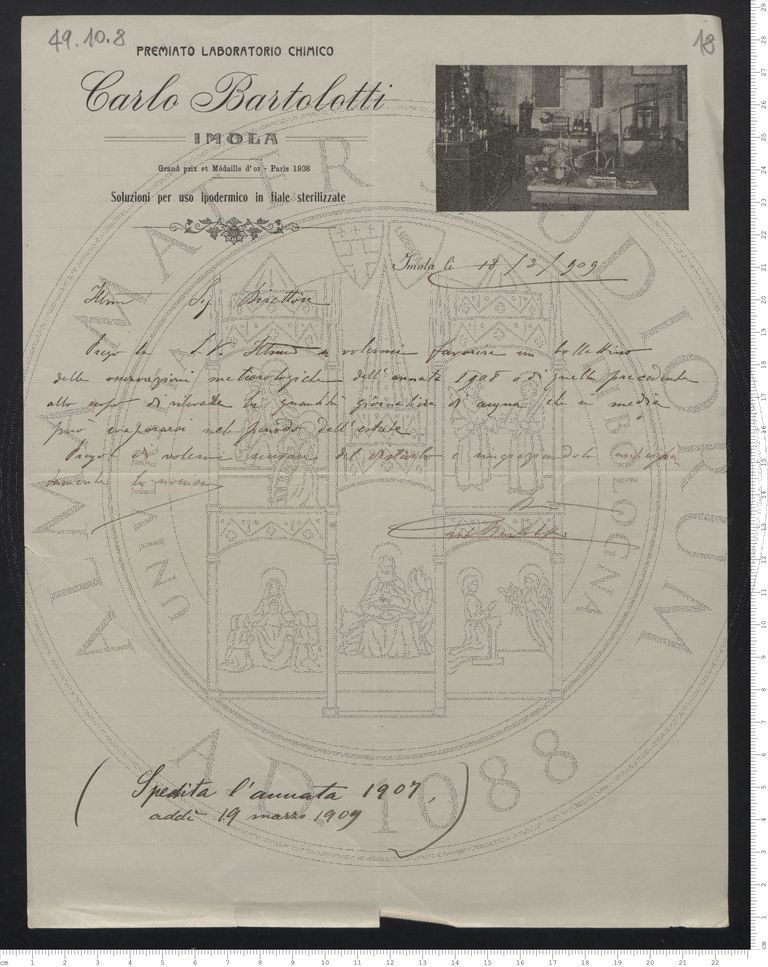 49.10.8
18
PREMIATO LABORATORIO CHIMICO
Carlo Bartolotti
IMOLA
Grand prix et Médaille d'or - Paris 1908
Soluzioni per uso ipodermico in fiale sterilizzate
Imola li 18/3/909
Sig Direttore
Prego la S.V. Illma a volermi favorire un bollettino
delle osservazioni meteorologiche dell'annata 1908 o di quella precedente
allo scopo di rilevare la quantità giornaliera d'acqua che in media
può evaporarsi nel periodo dell'estate.
Prego di volermi scusare del disturbo e ringraziandola anticipa
tamente la
Carlo Bartolotti
(Spedita l'annata 1907,
addì 19 marzo 1909)
ALMA MATER STUDIORUM
A.D. 1088